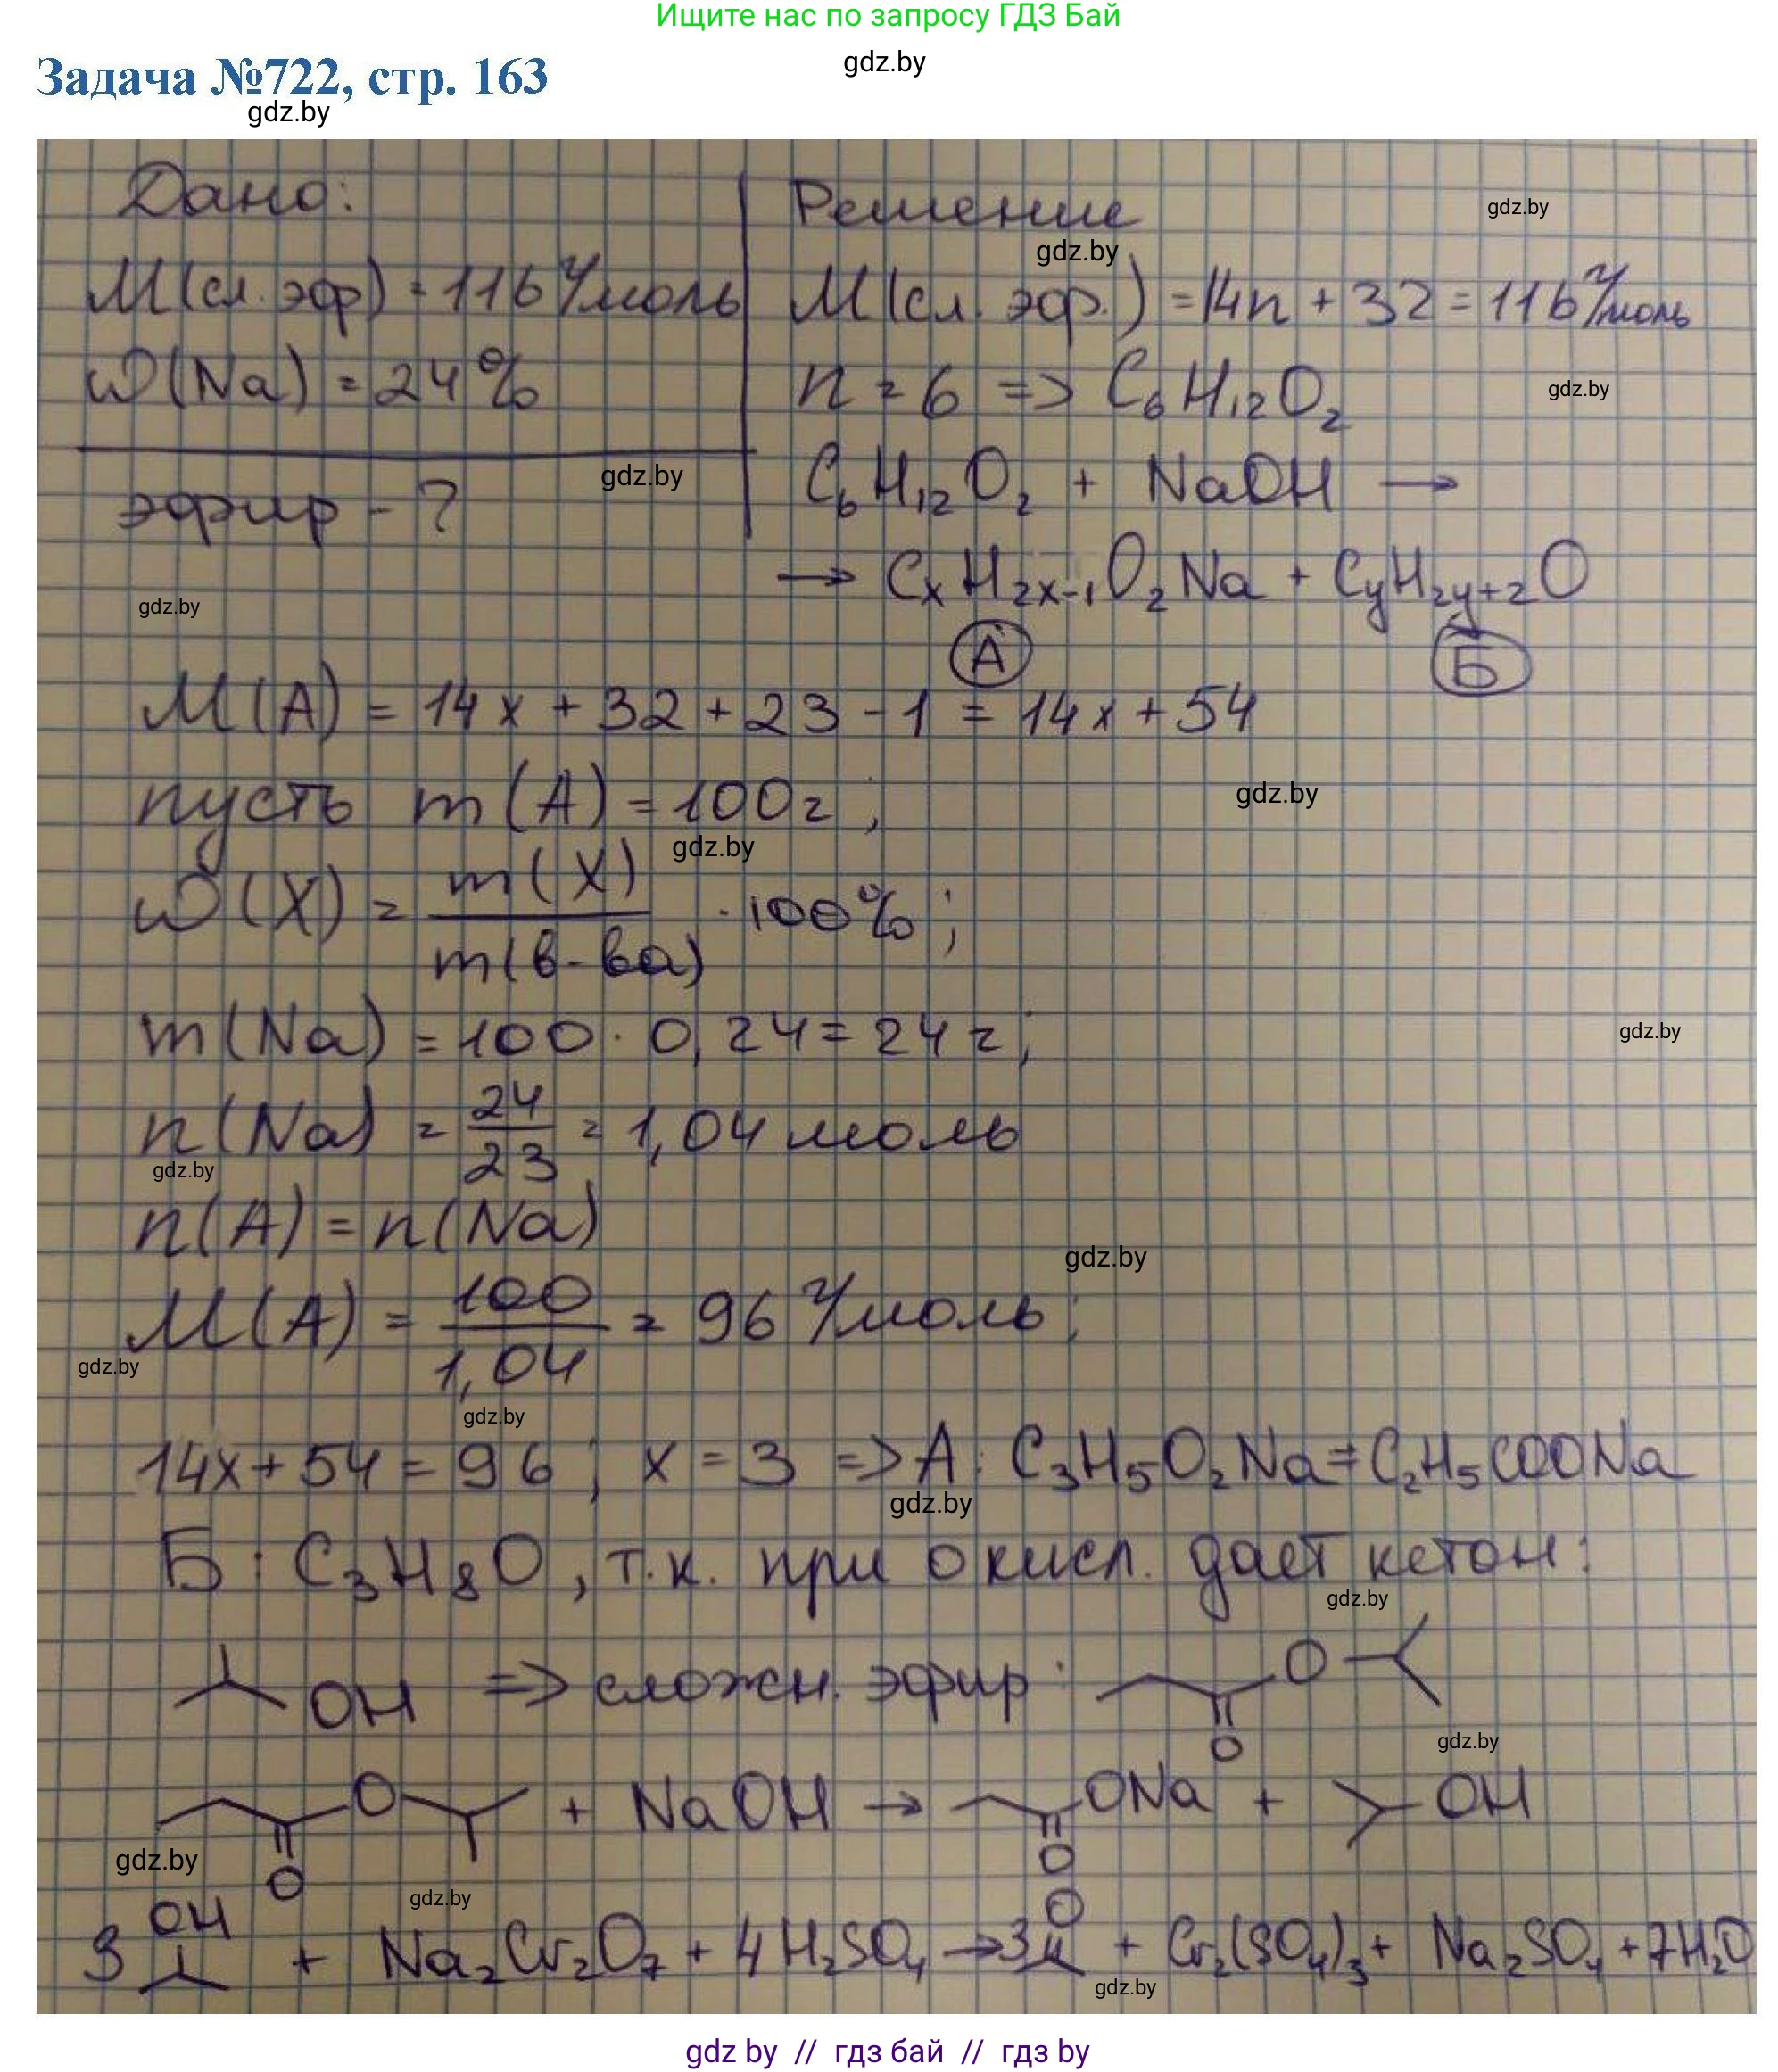 Ищите нас по запросу ГДЗ Бай
gdz.by
Задача №722, стр. 163
gdz.by
Дано:
Решение
gdz.by
gdz.by
M(сл. эф) = 116 г/моль
M(сл. эф.) = 14n + 32 = 116 г/моль
ω(Na) = 24%
n = 6 => C₆H₁₂O₂
gdz.by
эфир - ?
gdz.by
C₆H₁₂O₂ + NaOH →
→ CₓH₂ₓ₋₁O₂Na + CyH2y+2O
gdz.by
А
Б
M(A) = 14x + 32 + 23 - 1 = 14x + 54
пусть m(A) = 100г;
gdz.by
gdz.by
ω(X) = m(X) / m(в-ва) · 100%;
m(Na) = 100 · 0,24 = 24 г;
gdz.by
n(Na) = 24/23 = 1,04 моль
gdz.by
n(A) = n(Na)
gdz.by
M(A) = 100/1,04 = 96 г/моль;
gdz.by
gdz.by
14x + 54 = 96; x = 3 => A: C₃H₅O₂Na = C₂H₅COONa
gdz.by
Б: C₃H₈O, т.к. при окисл. дает кетон:
gdz.by
OH => сложн. эфир: O O
gdz.by
O O + NaOH → ONa O + OH
gdz.by
gdz.by
3 OH + Na₂Cr₂O₇ + 4H₂SO₄ → 3 O + Cr₂(SO₄)₃ + Na₂SO₄ + 7H₂O
gdz.by
gdz by // гдз бай // гдз by